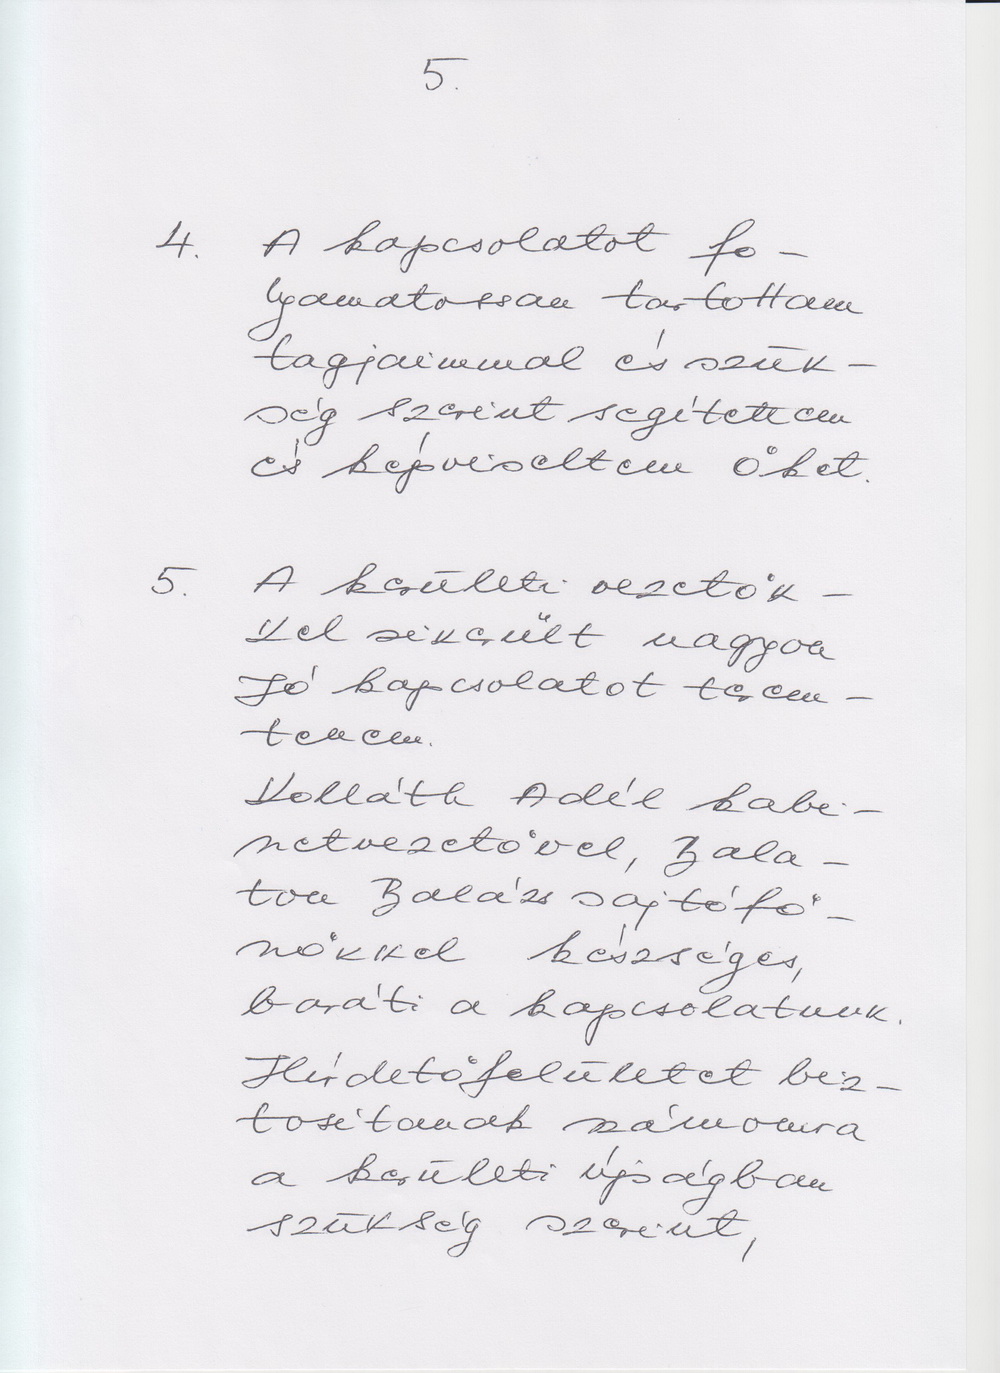 5.
4. A kapcsolatot fo-
lyamatossan tartottam
tagjaimmal és szük-
ség szerint segítettem
és képviseltem őket.
5. A kerületi vezetők-
kel sikerült nagyon
jó kapcsolatot terem-
tenem.
Volláth Adél kabi-
netvezetővel, Bala-
ton Balázs sajtófő-
nökkel készséges,
baráti a kapcsolatunk.
Hírdetőfelületet biz-
tosítanak számomra
a kerületi újságban
szükség szerint,